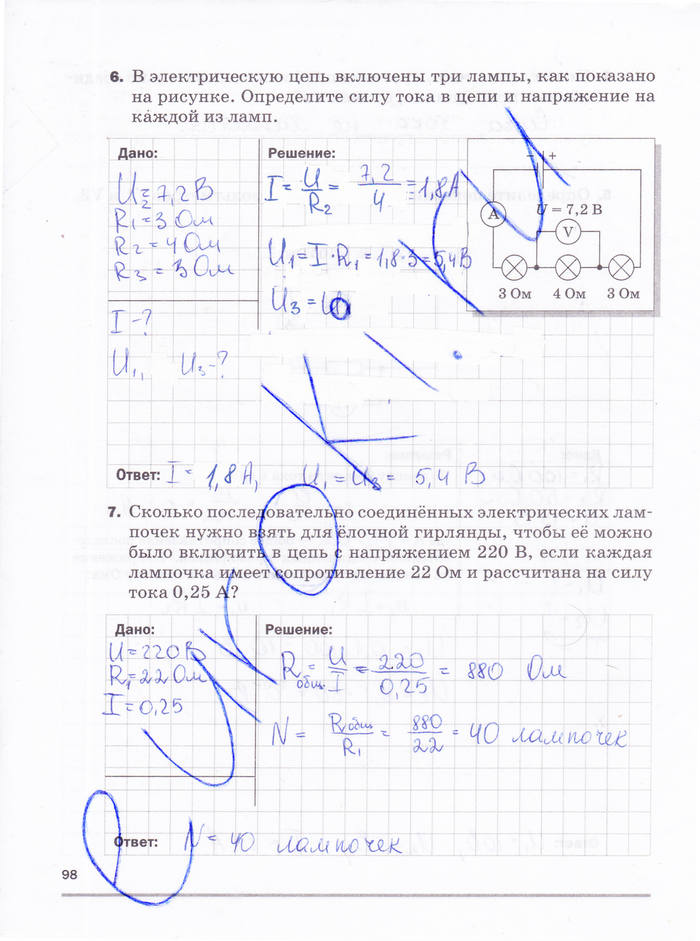 6. В электрическую цепь включены три лампы, как показано
на рисунке. Определите силу тока в цепи и напряжение на
каждой из ламп.
Дано:
U₂=7,2 В
R₁=3 Ом
R₂=4 Ом
R₃=3 Ом
I-?
U₁, U₃-?
Решение:
I = U/R₂ = 7,2/4 = 1,8 А
U₁=I·R₁=1,8·3=5,4 В
U₃=U₁
− +
A
U = 7,2 В
V
3 Ом 4 Ом 3 Ом
Ответ: I = 1,8 А, U₁=U₃= 5,4 В
7. Сколько последовательно соединённых электрических лам-
почек нужно взять для ёлочной гирлянды, чтобы её можно
было включить в цепь с напряжением 220 В, если каждая
лампочка имеет сопротивление 22 Ом и рассчитана на силу
тока 0,25 А?
Дано:
U=220 В
R₁=22 Ом
I=0,25
Решение:
Rобщ = U/I = 220/0,25 = 880 Ом
N = Rобщ/R₁ = 880/22 = 40 лампочек
Ответ: N=40 лампочек
98